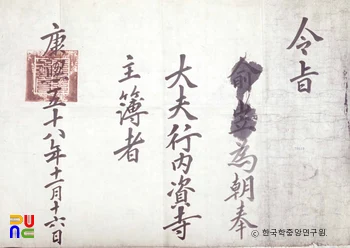 令旨
兪㞳為朝奉
大夫行內資寺
主簿者
康熙五十八年十二月十六日
PUNC
ⓒ 한국학중앙연구원